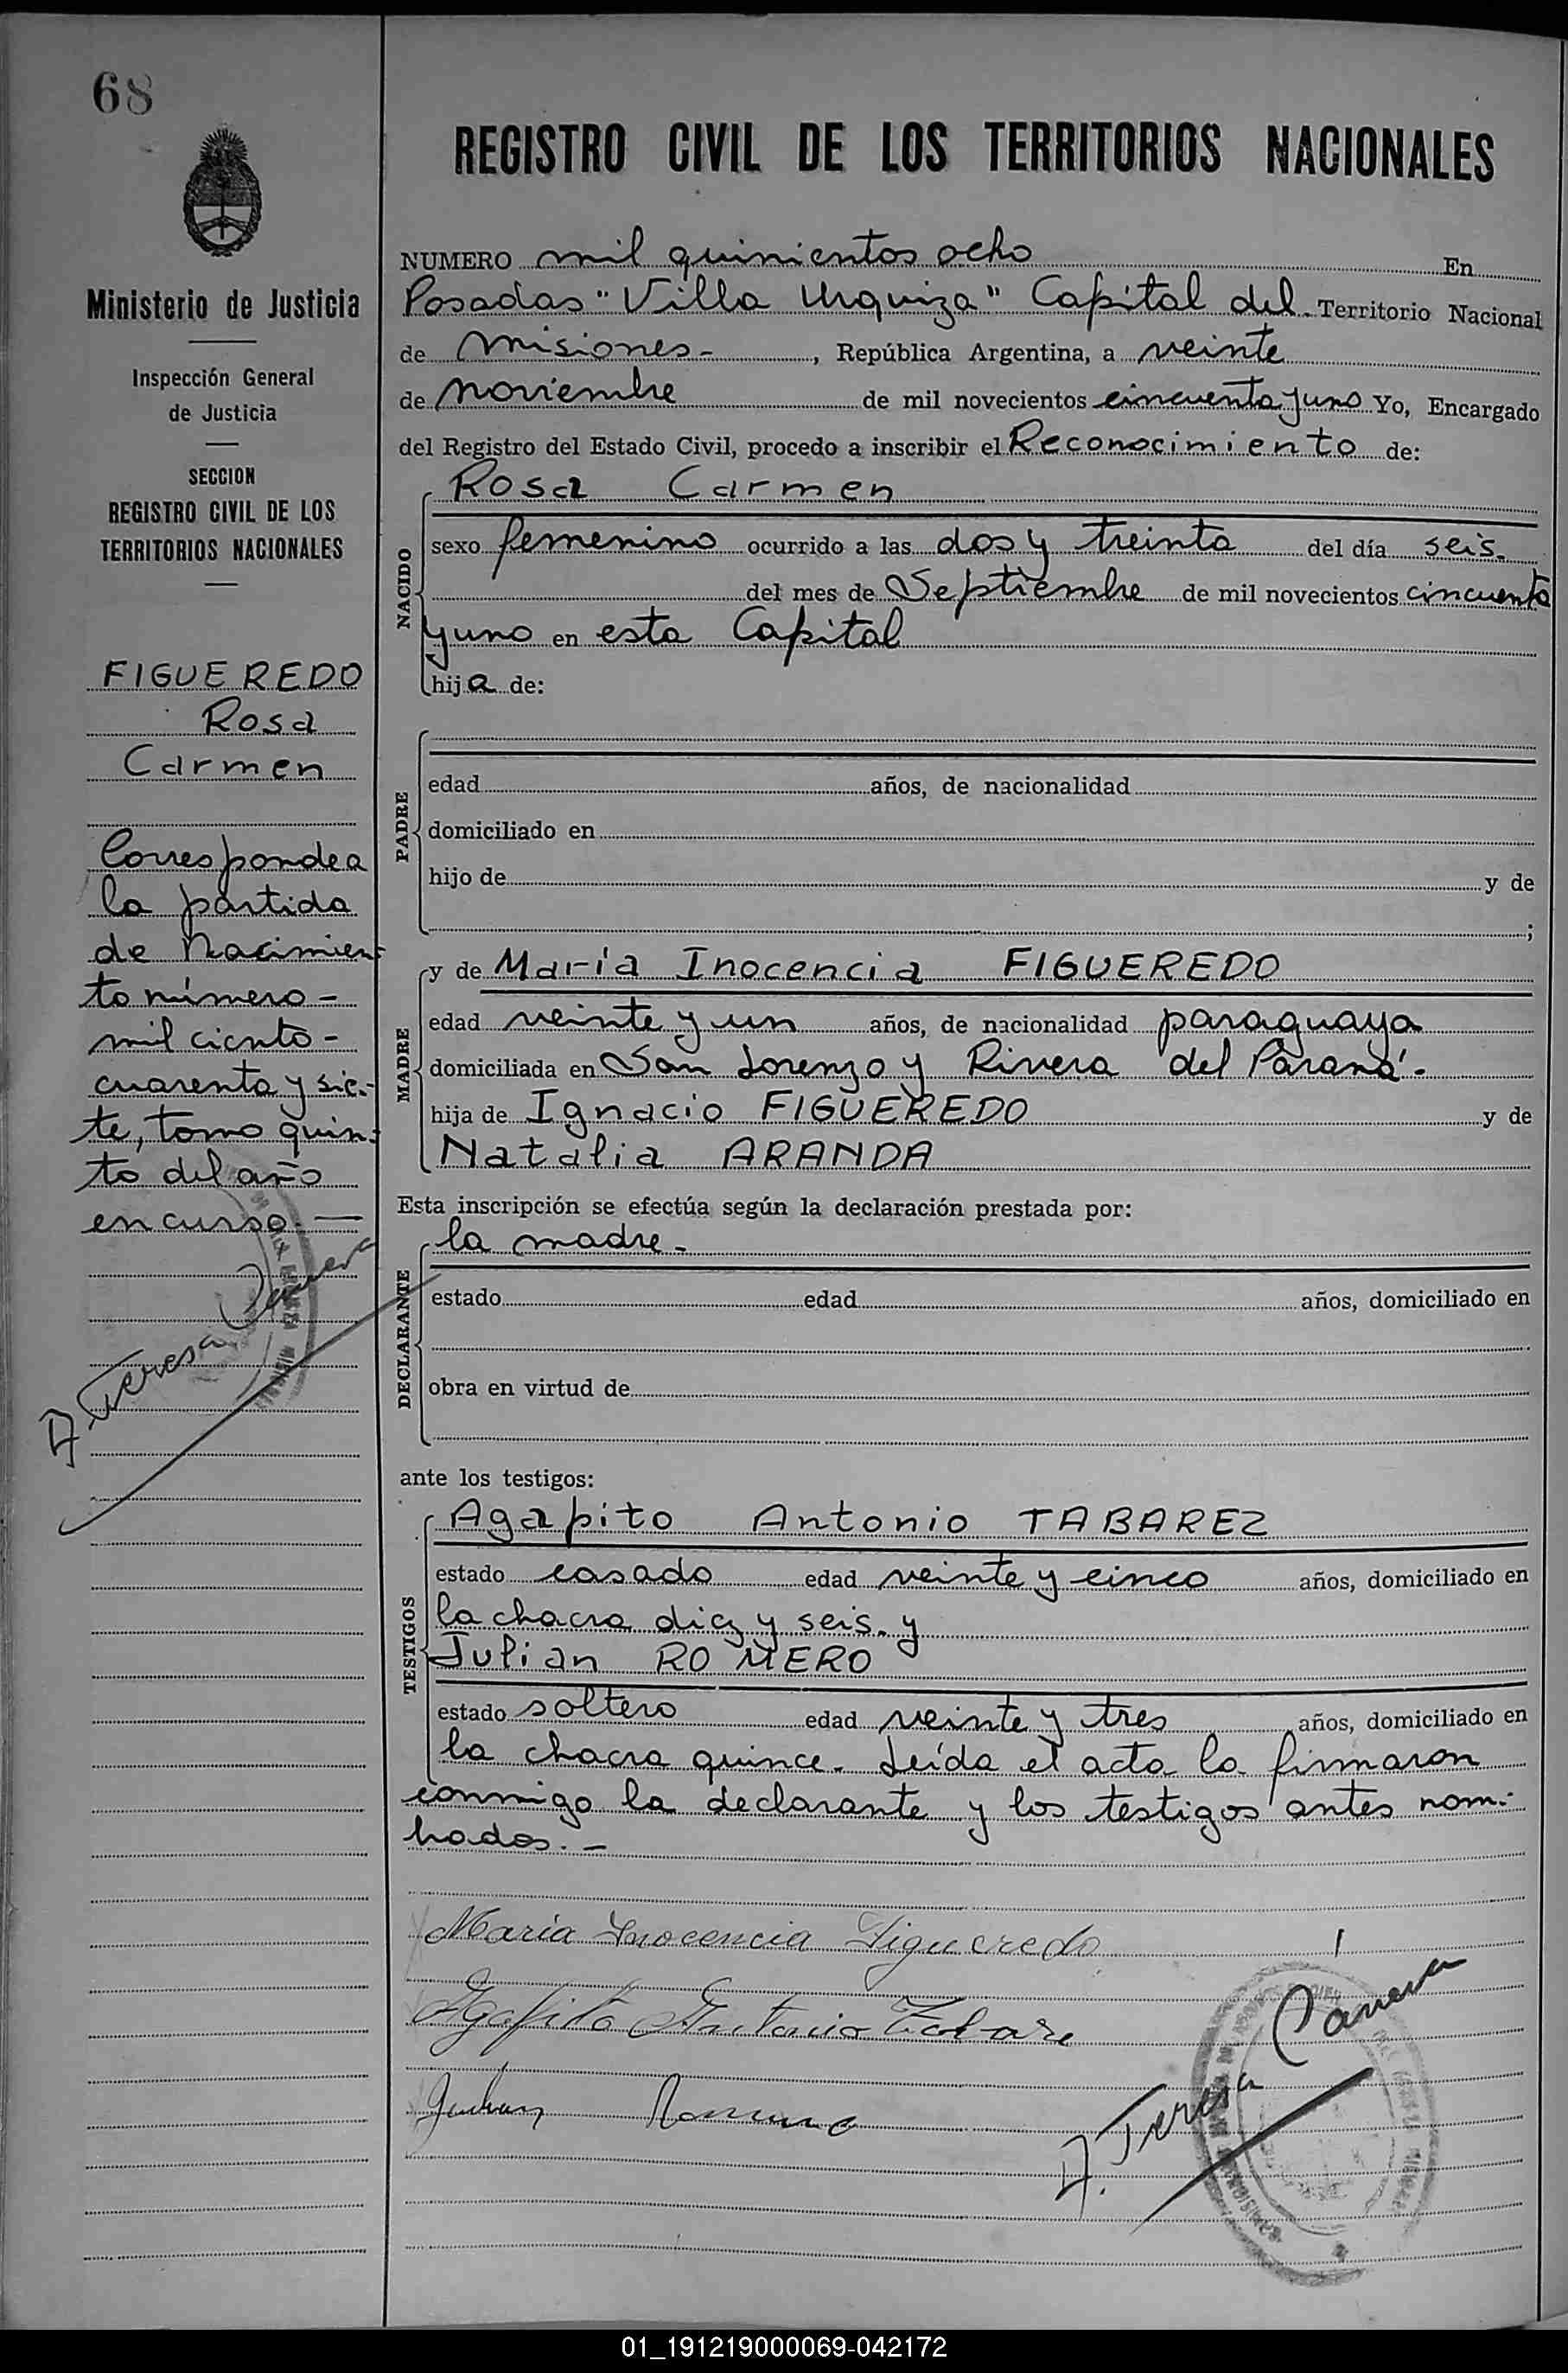 68
Ministerio de Justicia
Inspección General
de Justicia
SECCION
REGISTRO CIVIL DE LOS
TERRITORIOS NACIONALES
FIGUEREDO
Rosa
Carmen
Corresponde a
la partida
de Nacimien
to número -
mil ciento -
cuarenta y sie-
te, tomo quin-
to del año
en curso. —
A. Teresa
REGISTRO CIVIL DE LOS TERRITORIOS NACIONALES
NUMERO mil quinientos ocho En
Posadas "Villa Urquiza" Capital del Territorio Nacional
de Misiones - , República Argentina, a veinte
de noviembre de mil novecientos cincuenta y uno Yo, Encargado
del Registro del Estado Civil, procedo a inscribir el Reconocimiento de:
Rosa Carmen
NACIDO
sexo femenino ocurrido a las dos y treinta del día seis.
del mes de Septiembre de mil novecientos cincuenta
y uno en esta Capital
hija de:
PADRE
edad años, de nacionalidad
domiciliado en
hijo de y de
;
MADRE
y de María Inocencia FIGUEREDO
edad veinte y un años, de nacionalidad paraguaya
domiciliada en San Lorenzo y Rivera del Paraná.
hija de Ignacio FIGUEREDO y de
Natalia ARANDA
Esta inscripción se efectúa según la declaración prestada por:
la madre -
DECLARANTE
estado edad años, domiciliado en
obra en virtud de
ante los testigos:
TESTIGOS
Agapito Antonio TABAREZ
estado casado edad veinte y cinco años, domiciliado en
la chacra diez y seis. y
Julian ROMERO
estado soltero edad veinte y tres años, domiciliado en
la chacra quince. Leída el acta la firmaron
conmigo la declarante y los testigos antes nom-
brados. -
Maria Inocencia Figueredo
Agapito Antonio Tabare
Julian Romero
A. Teresa
01_191219000069-042172